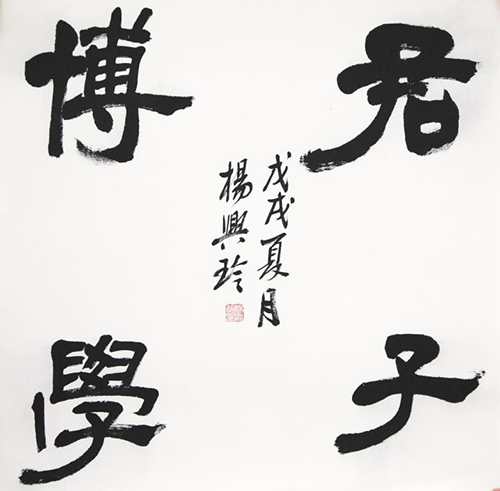 君子
博學
戊戌夏月
楊興玲